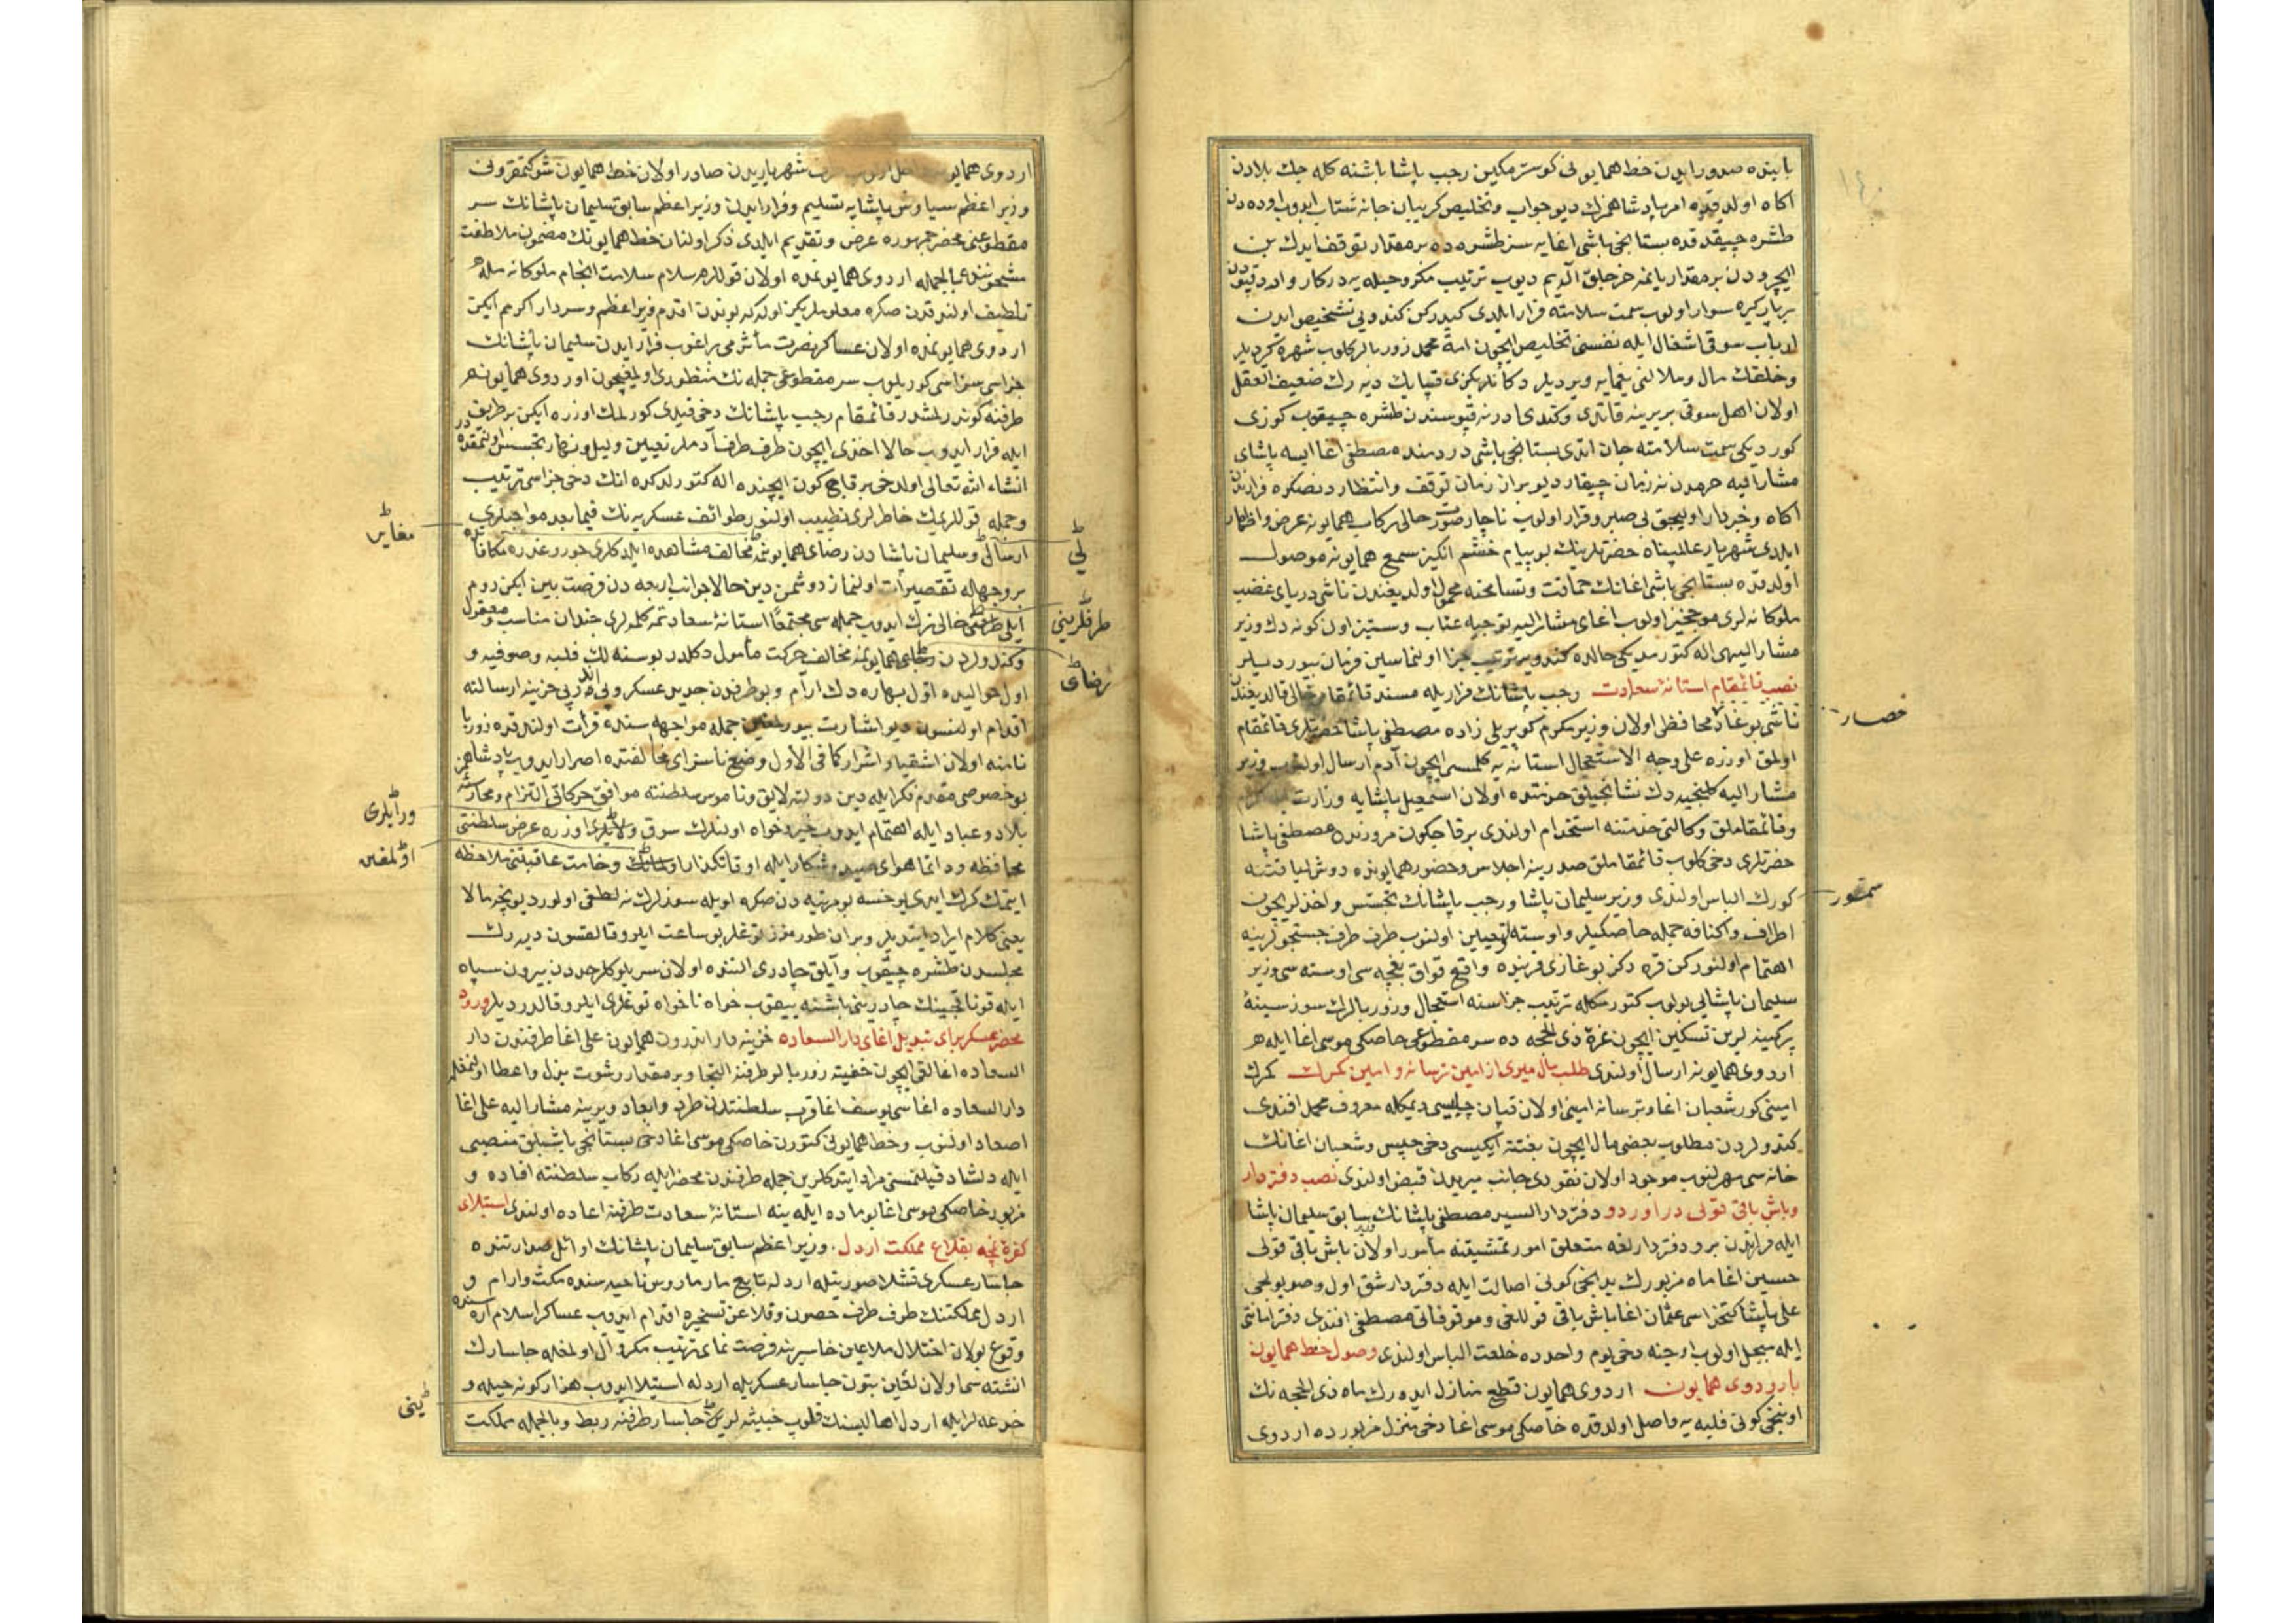 بابنده صدور ايدن خط همايونى كوسترمكين رجب پاشا باشنه كله جك بلادن
آكاه اولدقده امر پادشاهمزك ديو جواب وتخليص كريبان جانه شتاب ايدوب اوده دن
طشره چيقدقده بستانجى باشى اغايه سز طشره ده بر مقدار توقف ايدك بن
ايچرودن بر مقدار يانمه خرجلق آلايم ديوب ترتيب مكر وحيله يه دركار واندرون قپودن
بر باركيره سوار اولوب سمت سلامته فرار ايلدى كيدركن كندويى تشخيص ايدن
ارباب سوقى اشغال ايله نفسنى تخليص ايچون امة محمد زوربالر كلوب شهره كرديلر
وخلقك مال ومنالنى يغمايه ويرديلر دكانلريكزى قپايك ديه رك ضعيف العقل
اولان اهل سوقى بربرينه قاتدى وكندى ادرنه قپوسندن طشره چيقوب كوزى
كورديكى سمت سلامته جان اتدى بستانجى باشى دردمنده مصطفى اغا ايسه پاشاى
مشار اليه حرمدن نه زمان چيقار ديو بر از زمان توقف وانتظاردنصكره فرارندن
آكاه وخبردار اوليجق بى صبر وقرار اولوب ناچار صورت حالى ركاب همايونه عرض واظهار
ايلدى شهريار عالمپناه حضرتلرينك بو پيام خشم انكيز سمع همايونه موصول
اولدقده بستانجى باشى اغانك حماقت وتسامحنه محمول اولديغندن ناشى درياى غضب
ملوكانه لرى موجخيز اولوب اغاى مشار اليه توجيه عتاب وستيز اون كونه دك وزير
مشار اليهى اله كتورمديكى حالده كندويه ترتيب جزا اولنماسين فرمان بيورديلر
نصب قائمقام استانۀ سعادت رجب پاشانك فراريله مسند قائمقامى خالى قالديغندن
ناشى بوغاز محافظى اولان وزير مكرم كوپريلى زاده مصطفى پاشا حضرتلرى قائمقام
حصار
اولمق اوزره على وجه الاستعجال استانه يه كلمسى ايچون آدم ارسال اولنوب وزير
مشار اليه كلنجيه دك نشانجيلق خدمتنده اولان اسمعيل پاشايه وزارت
وقائمقاملق وكالتى خدمتنه استخدام اولندى بر قاچ كون مرورنده مصطفى پاشا
حضرتلرى دخى كلوب قائمقاملق صدرينه اجلاس وحضور همايونده دوش لياقتنه
كورك الباس اولندى وزير سليمان پاشا ورجب پاشانك تجسس واخذلريچون
سمور
اطراف واكنافه جمله خاصكيلر واوسته لر تعيين اولنوب طرف طرف جستجولرينه
اهتمام اولنوركن قره دكز بوغازى قربنده واقع قواق بغچه سى اوسته سى وزير
سليمان پاشايى بولوب كتورمكله ترتيب جزاسنه استعجال وزوربالرك سوز سينۀ
پركينه لرين تسكين ايچون غرۀ ذى الحجه ده سر مقطوعى خاصكى موسى اغا ايله
اردوى همايونه ارسال اولندى طلب مال ميرى از امين ترسانه وامين كمرك كمرك
امينى كور شعبان اغا وترسانه امينى اولان قپان چلبيسى ديمكله معروف محمد افندى
كندولردن مطلوب بعضى مال ايچون بغتة ايكيسى دخى حبس وشعبان اغانك
خانه سى مهرلنوب موجود اولان نقودى جانب ميريدن قبض اولندى نصب دفتردار
وباش باقى قولى در اوردو دفتردار السيد مصطفى پاشانك سابق سليمان پاشا
ايله فرارندن برو دفتردارلغه متعلق امور تمشيتنه مأمور اولان باش باقى قولى
حسين اغا ماه مزبورك يدنجى كونى اصالت ايله دفتردار شق اول وصويولجى
على پاشا كتخداسى عثمان اغا باش باقى قوللغى وموقوفاتى مصطفى افندى دفتر امانتى
ايله مبجل اولوب اوچنه دخى يوم واحدده خلعت الباس اولندى وصول خط همايون
باردوى همايون اردوى همايون قطع منازل ايده رك ماه ذى الحجه نك
اونبجى كونى فلبه يه واصل اولدقده خاصكى موسى اغا دخى منزل مزبورده اردوى
اردوى همايونه شهرياريدن صادر اولان خط همايون شوكتمقرونى
وزير اعظم سياوش پاشايه تسليم وفرار ايدن وزير اعظم سابق سليمان پاشانك سر
مقطوعنى محضر جمهوره عرض وتقديم ايلدى ذكر اولنان خط همايونك مضمون ملاطفت
مشحونندن بالجمله اردوى همايونمده اولان قوللرم سلام سلامت انجام ملوكانه مله
تلطيف اولندقدن صكره معلوملريكز اوله كه بوندن اقدم وزير اعظم وسردار اكرمم ايكن
اردوى همايونمده اولان عساكر نصرت مأثرمى براغوب فرار ايدن سليمان پاشانك
جزاسى سزاسى كوريلوب سر مقطوعى جمله نك منظورى اولمغيچون اوردوى همايونم
طرفنه كوندرلمشدر قائمقام رجب پاشانك دخى قيدى كورلمك اوزره ايكن بر طريق
ايله فرار ايدوب حالا اخذى ايچون طرف طرف آدملر تعيين وليل ونهار تجسس اولنمقده در
انشاء الله تعالى اول دخى بر قاچ كون ايچنده اله كتورلدكده انك دخى جزاسى ترتيب
وجمله قوللريمك خاطرلرى تطييب اولنور طوائف عسكريه نك فيمابعد مواجبلرى
ارسالى وسليمان پاشادن رضاى همايونمه مخالف مشاهده ايلدكلرى جور وغدره مكافاة
مغاير
لى
بر وجهله تقصيرات اولنماز دوشمن دين حالا جوانب اربعه دن فرصت بين ايكن روم
ايلى طرفنى خالى ترك ايدوب جمله سى مجتمعا استانۀ سعادتمه كلمه لرى چندان مناسب ومعقول
طرفلرينى
وكندولردن رضاى همايونمه مخالف حركت مأمول دكلدر بو سنه لك فلبه وصوفيه و
رضاى
اول حواليده اول بهاره دك ارام وبو طرفدن جديد عسكر وپى در پى خزينه ارسالنه
اقدام اولنسون ديو اشارت بيورلمغين جمله مواجهه سنده قرائت اولندقده زوربا
نامنه اولان اشقيا واشرار كافى الاول وضع ناسزاى مخالفتده اصرار ايدوب پادشاهمز
بو خصوصى مقدم فكر ايله دين دولته لايق وناموس سلطنته موافق حركاتى التزام
بلاد وعباد ايله اهتمام ايدوب خيرخواه اولنلرك سوق ورايلرى اوزره عرض سلطنتى
ورايلرى
محافظه ودائما هواى صيد وشكار ايله اوقاتكذار وخامت عاقبتنى ملاحظه
اولمغين
ايتمك كرك ايدى يوخسه بو مرتبه دن صكره اويله سوزلرك نه لطفى اولور ديو نيجه مالا
يعنى كلام ايراد ايتديلر ويران طورمزز توغلر بو ساعت ايلرو قالقسون ديه رك
مجلسدن طشره چيقوب وآيلق چادرى التنده اولان سريلوكلر حددن بيرون سپاه
ايله قوناقجينك چادرينى باشنه ييقوب خواه ناخواه توغلرى ايلرو قالدرديلر ورود
محضر عسكر براى تبديل اغاى دار السعاده خزينه دار اندرون همايون على اغا طرفندن دار
السعاده اغالقى ايچون خفيته زوربالر طرفنه التجا وبر مقدار رشوت بذل واعطا اولنمغله
دار السعاده اغاسى يوسف اغا قرب سلطنتدن طرد وابعاد ويرينه مشار اليه على اغا
اصعاد اولنوب وخط همايونى كتورن خاصكى موسى اغا دخى بستانجى باشيلق منصبى
ايله دلشاد قيلنمسنى مراد ايتدكلرين جمله طرفندن محضر ايله ركاب سلطنته افاده و
مزبور خاصكى موسى اغا بو ماده ايله ينه استانۀ سعادت طرفنه اعاده اولندى استيلاى
كفره نمچه بقلاع مملكت اردل وزير اعظم سابق سليمان پاشانك اوائل صدارتنده
چاسار عسكرى قشلا صورتيله اردله تابع مارماروس ناحيه سنده مكث وارام و
اردل مملكتنك طرف طرف حصون وقلاعن تسخيره اقدام ايدوب عساكر اسلام اره سنده
وقوع بولان اختلال ملاعين خاسرينه فرصت نماى ترتيب مكر وآل اولمغله چاسارك
انشته سى اولان لعين بتون چاسار عسكريله اردله استيلا ايدوب هزار كونه حيله و
خدعه لر ايله اردل اهاليسنك قلوب خبيثه لرين چاسار طرفنه ربط وبالجمله مملكت
ينى